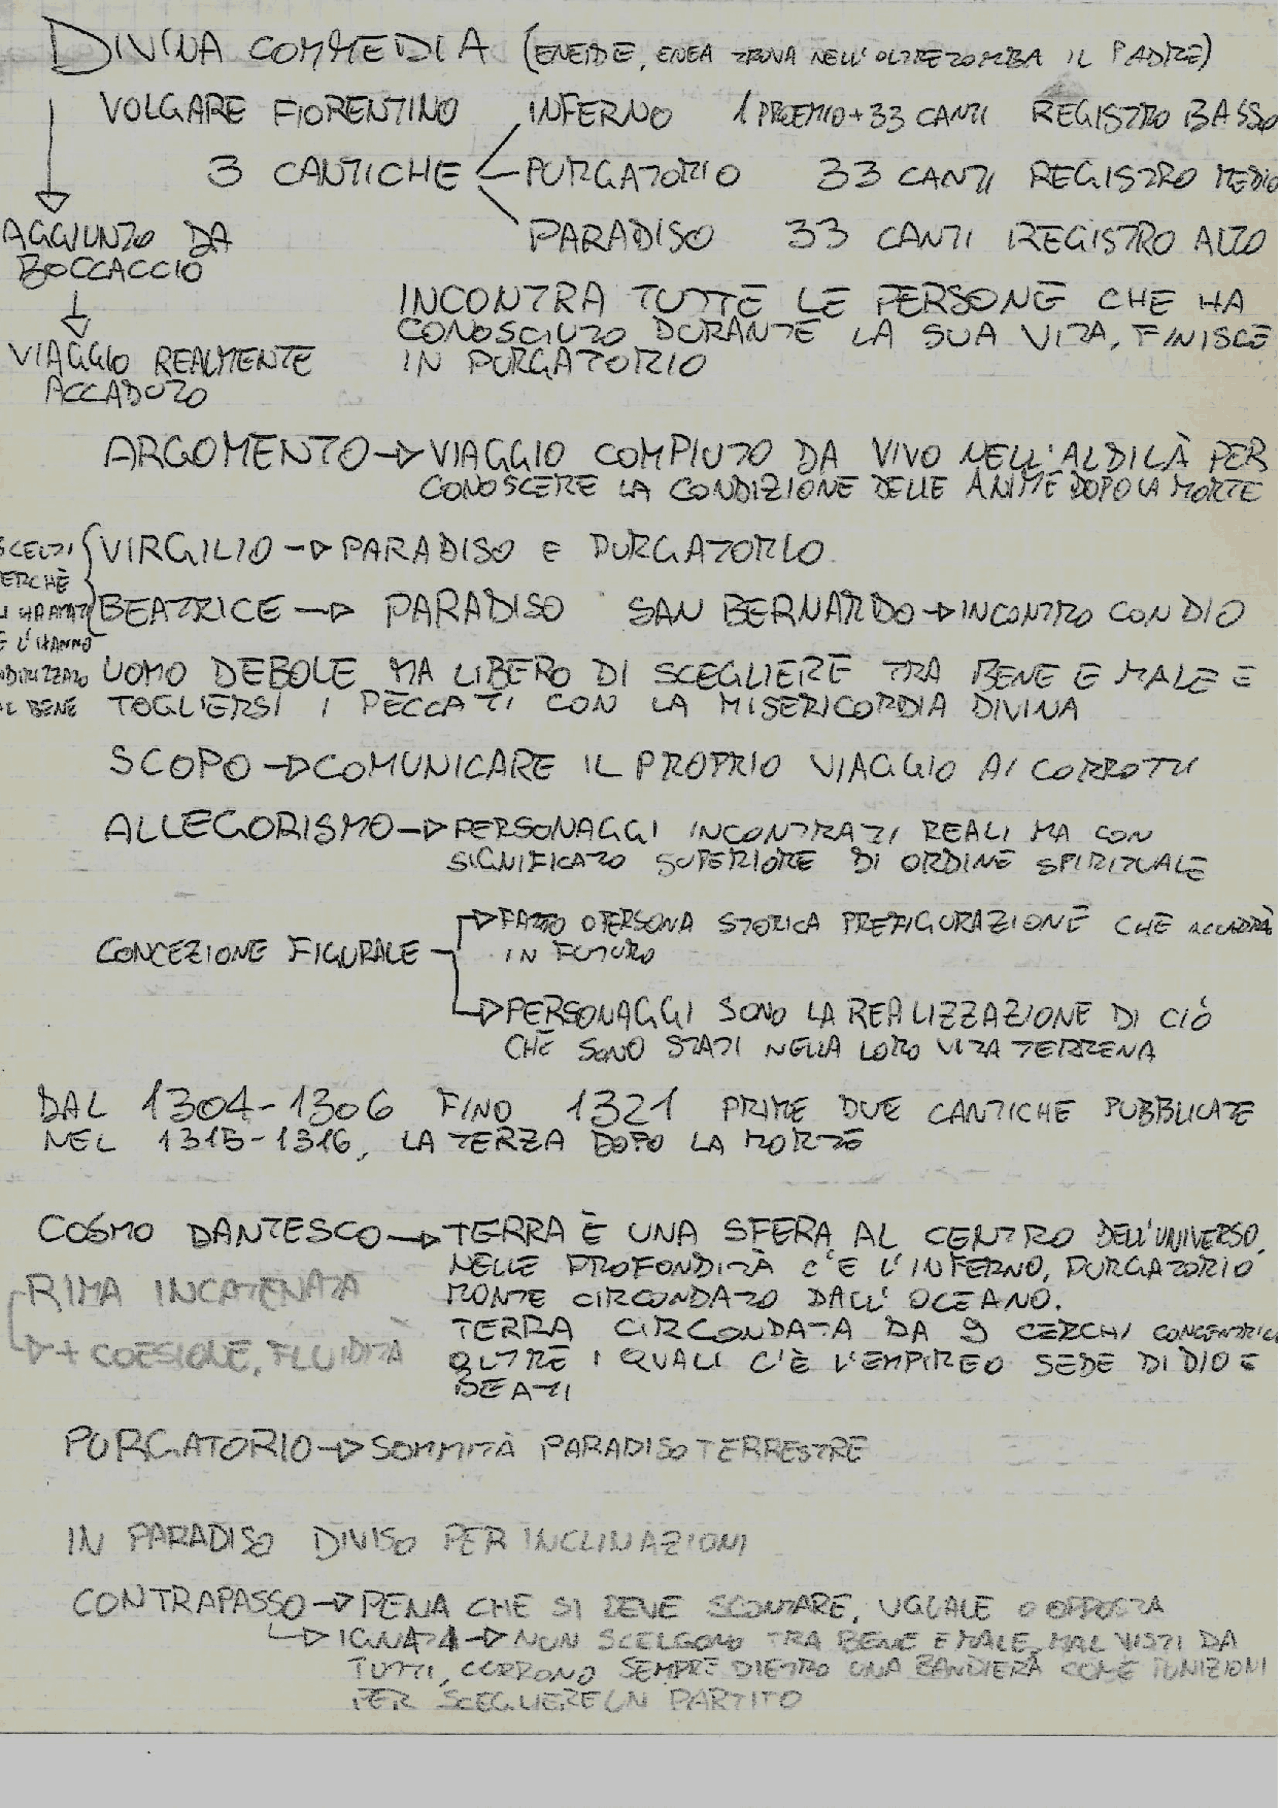 DIVINA COMMEDIA (ENEIDE, ENEA TROVA NELL'OLTRETOMBA IL PADRE)
VOLGARE FIORENTINO
3 CANTICHE
INFERNO 1 PROEMIO+33 CANTI REGISTRO BASSO
PURGATORIO 33 CANTI REGISTRO MEDIO
PARADISO 33 CANTI REGISTRO ALTO
AGGIUNTO DA
BOCCACCIO
VIAGGIO REALMENTE
ACCADUTO
INCONTRA TUTTE LE PERSONE CHE HA
CONOSCIUTO DURANTE LA SUA VITA, FINISCE
IN PURGATORIO
ARGOMENTO → VIAGGIO COMPIUTO DA VIVO NELL'ALDILÀ PER
CONOSCERE LA CONDIZIONE DELLE ANIME DOPO LA MORTE
SCELTI
ERCHÈ
HA AMATI
E L'HANNO
NDIRIZZATO
AL BENE
VIRGILIO → PARADISO E PURGATORIO
BEATRICE → PARADISO SAN BERNARDO → INCONTRO CON DIO
UOMO DEBOLE MA LIBERO DI SCEGLIERE TRA BENE E MALE E
TOGLIERSI I PECCATI CON LA MISERICORDIA DIVINA
SCOPO → COMUNICARE IL PROPRIO VIAGGIO AI CORROTTI
ALLEGORISMO → PERSONAGGI INCONTRATI REALI MA CON
SIGNIFICATO SUPERIORE DI ORDINE SPIRITUALE
CONCEZIONE FIGURALE
→ FATTO O PERSONA STORICA PREFIGURAZIONE CHE ACCADRÀ
IN FUTURO
→ PERSONAGGI SONO LA REALIZZAZIONE DI CIÒ
CHE SONO STATI NELLA LORO VITA TERRENA
DAL 1304-1306 FINO 1321 PRIME DUE CANTICHE PUBBLICATE
NEL 1315-1316, LA TERZA DOPO LA MORTE
COSMO DANTESCO → TERRA È UNA SFERA AL CENTRO DELL'UNIVERSO,
NELLE PROFONDITÀ C'È L'INFERNO, PURGATORIO
MONTE CIRCONDATO DALL'OCEANO.
TERRA CIRCONDATA DA 9 CERCHI CONCENTRICI
OLTRE I QUALI C'È L'EMPIREO SEDE DI DIO E
BEATI
RIMA INCATENATA
→ + COESIONE, FLUIDITÀ
PURGATORIO → SOMMITÀ PARADISO TERRESTRE
IN PARADISO DIVISO PER INCLINAZIONI
CONTRAPASSO → PENA CHE SI DEVE SCONTARE, UGUALE O OPPOSTA
→ IGNAVI → NON SCELGONO TRA BENE E MALE, MAL VISTI DA
TUTTI, CORRONO SEMPRE DIETRO UNA BANDIERA COME PUNIZIONI
PER SCEGLIERE UN PARTITO